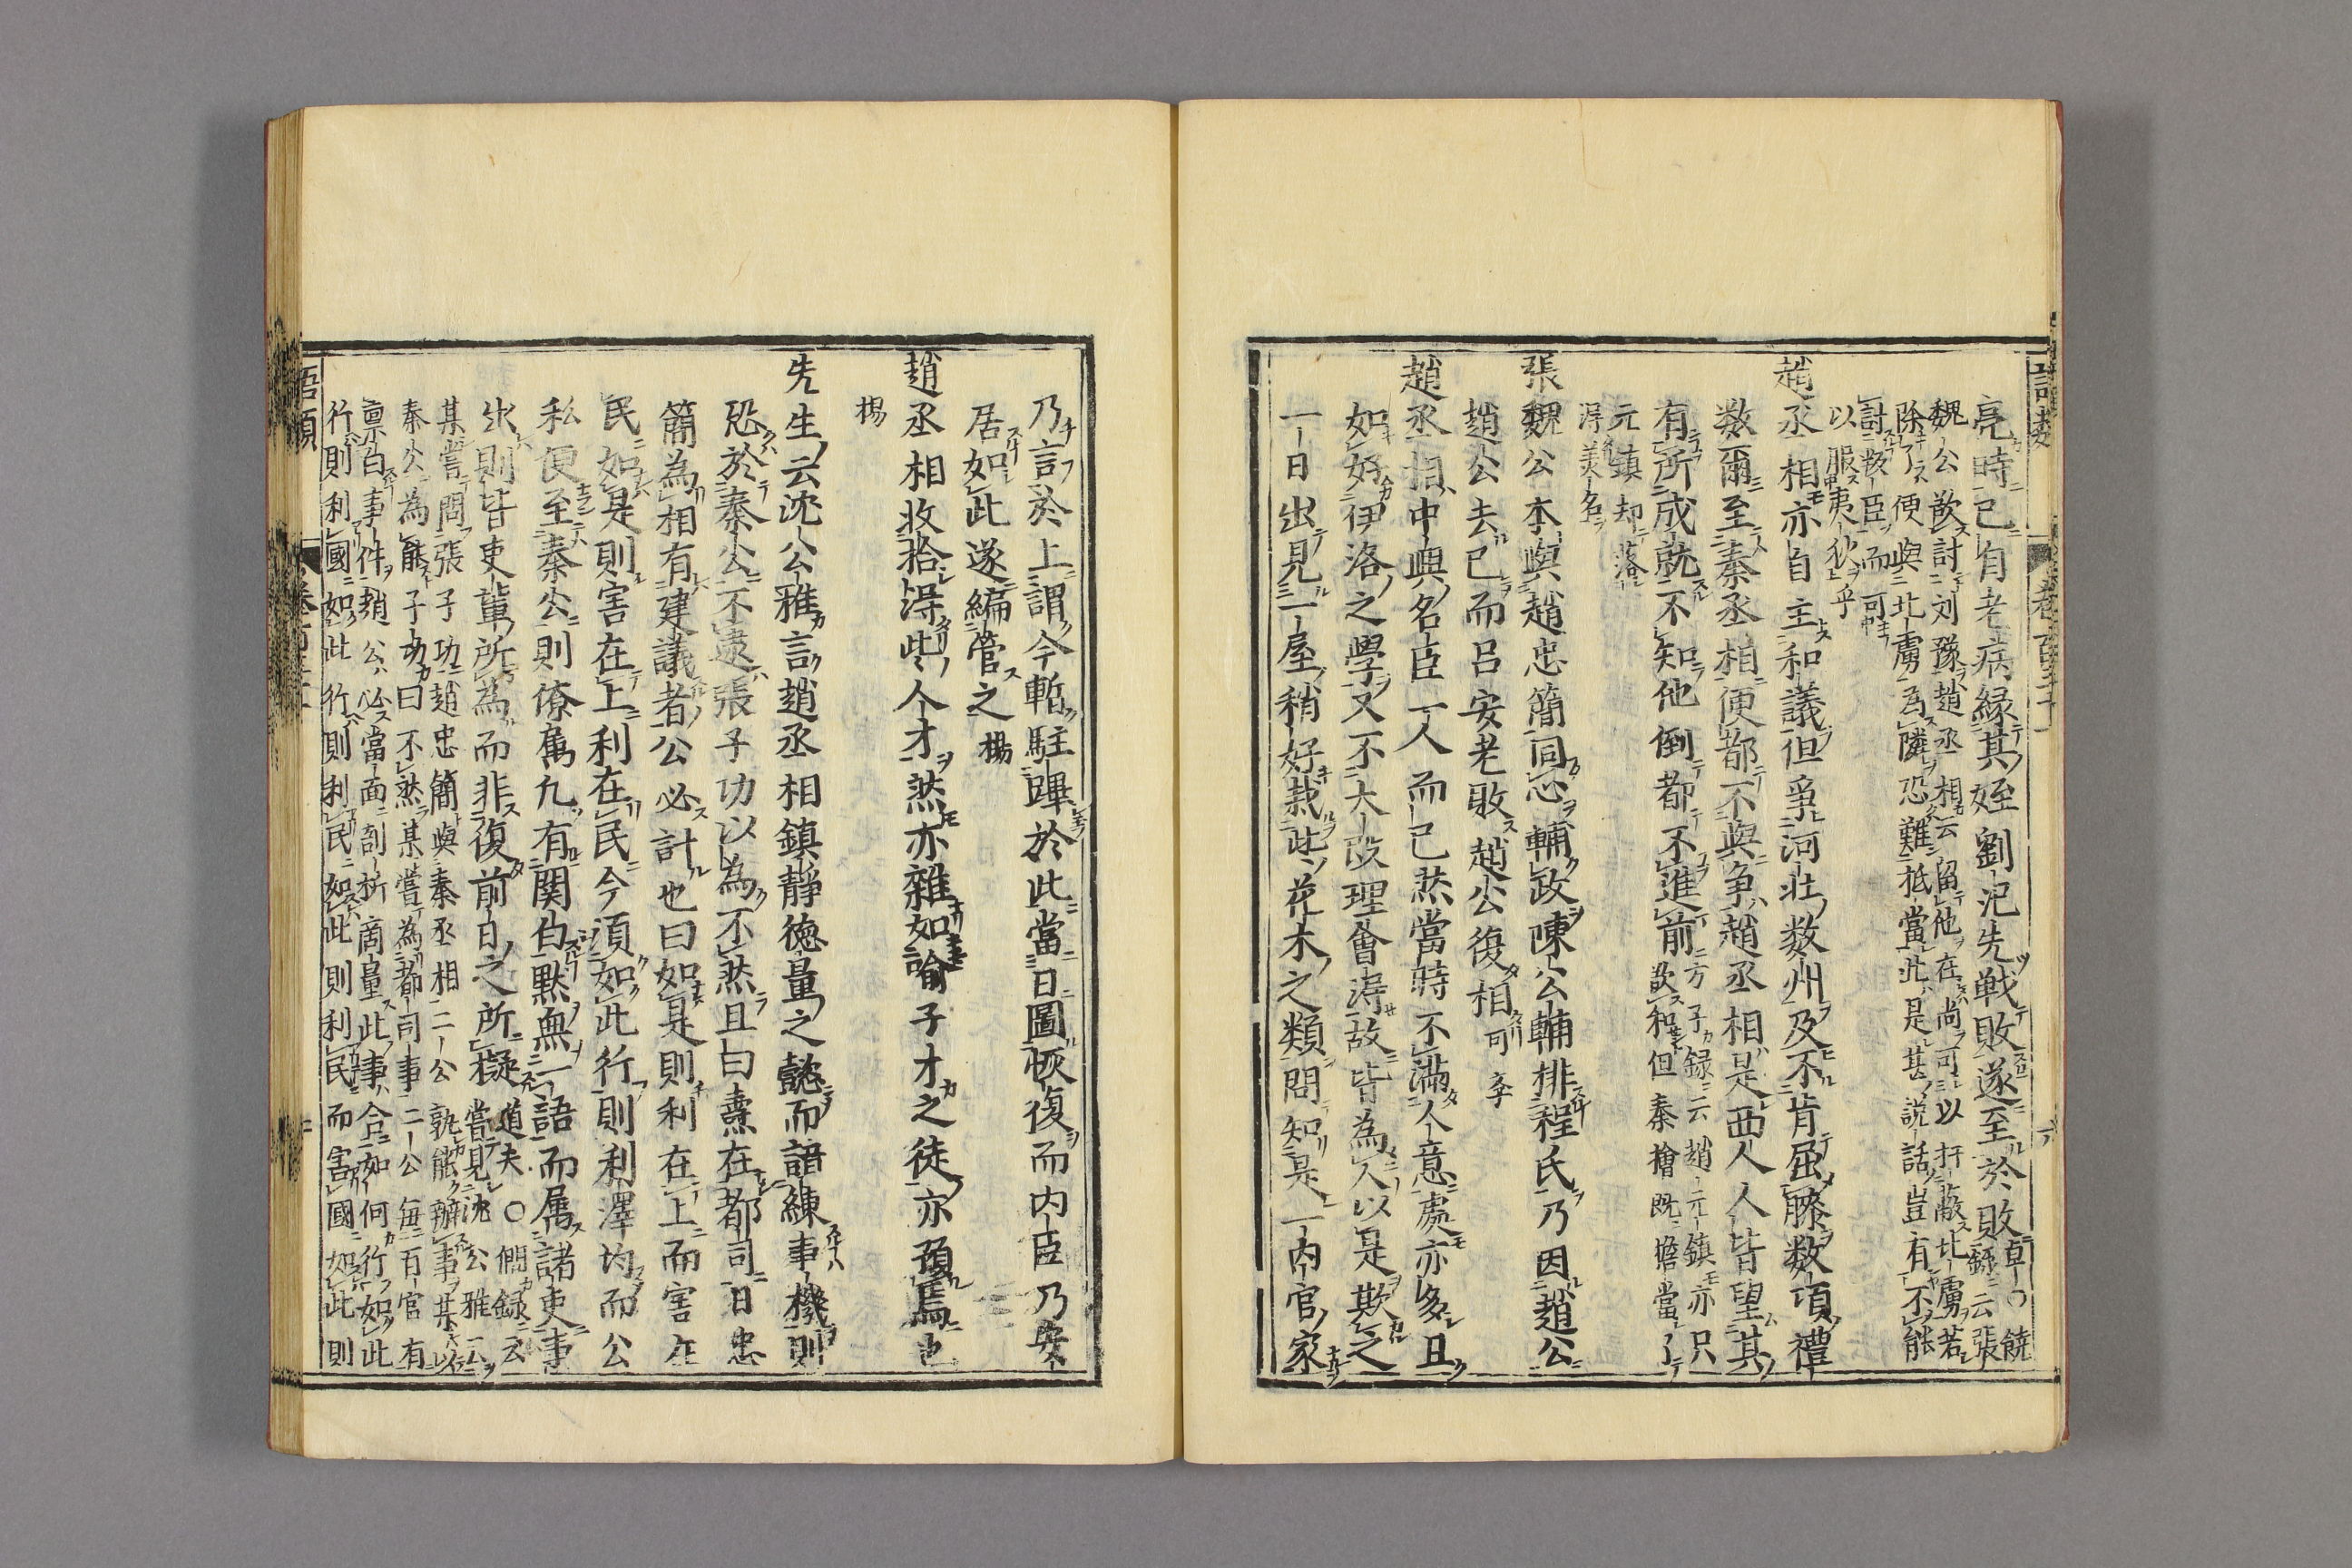 語類 卷百三十一 六
亮時已有老病縁其姪劉汜先戰敗遂至於敗卓○饒録云張
魏公欲討刘豫趙丞相云留他在尚可以扞蔽北虜若
除了便與北虜為隣恐難抵當此是甚說話豈有不能
討叛臣而可
以服夷狄乎
趙丞相亦自主和議但爭河北数州及不肯屈膝数項禮
数爾至秦丞相便都不與争趙丞相是西人人皆望其
有所成就不知他倒都不進前方子録云趙元鎮亦只
欲和但秦檜既擔當了
元鎮却落
得美名
張魏公本與趙忠簡同心輔政陳公輔排程氏乃因趙公
趙公去已而呂安老敗趙公復相可斈
趙丞相中興名臣一人而已然當時不滿人意處亦多且
如好伊洛之學又不大段理會得故皆為人以是欺之
一日出見一屋稍好栽此花木之類問知是一内官家
乃言於上謂今暫駐蹕於此當日圖恢復而内臣乃安
居如此遂編管之楊
趙丞相收拾得些人才然亦雜如喻子才之徒亦預焉也
楊
先生云沈公雅言趙丞相鎮静德量之懿而諳練事機則
恐於秦公不逮張子功以為不然且曰燾在都司日忠
簡為相有建議者公必計也曰如是則利在上而害在
民如是則害在上利在民今須如此行則利澤均而公
私便至秦公則僚属凡有関白黙無一語而属諸吏事
出則皆吏軰所為而非復前日之所擬道夫○僴録云
嘗見沈公雅云
某嘗問張子功趙忠簡與秦丞相二公孰能辦事某以
秦公為能子功曰不然某嘗為都司事二公毎百官有
禀白事件趙公必當面剖析商量此事合如何行如此
行則利國如此行則利民如此則利民而害國如此則
語類